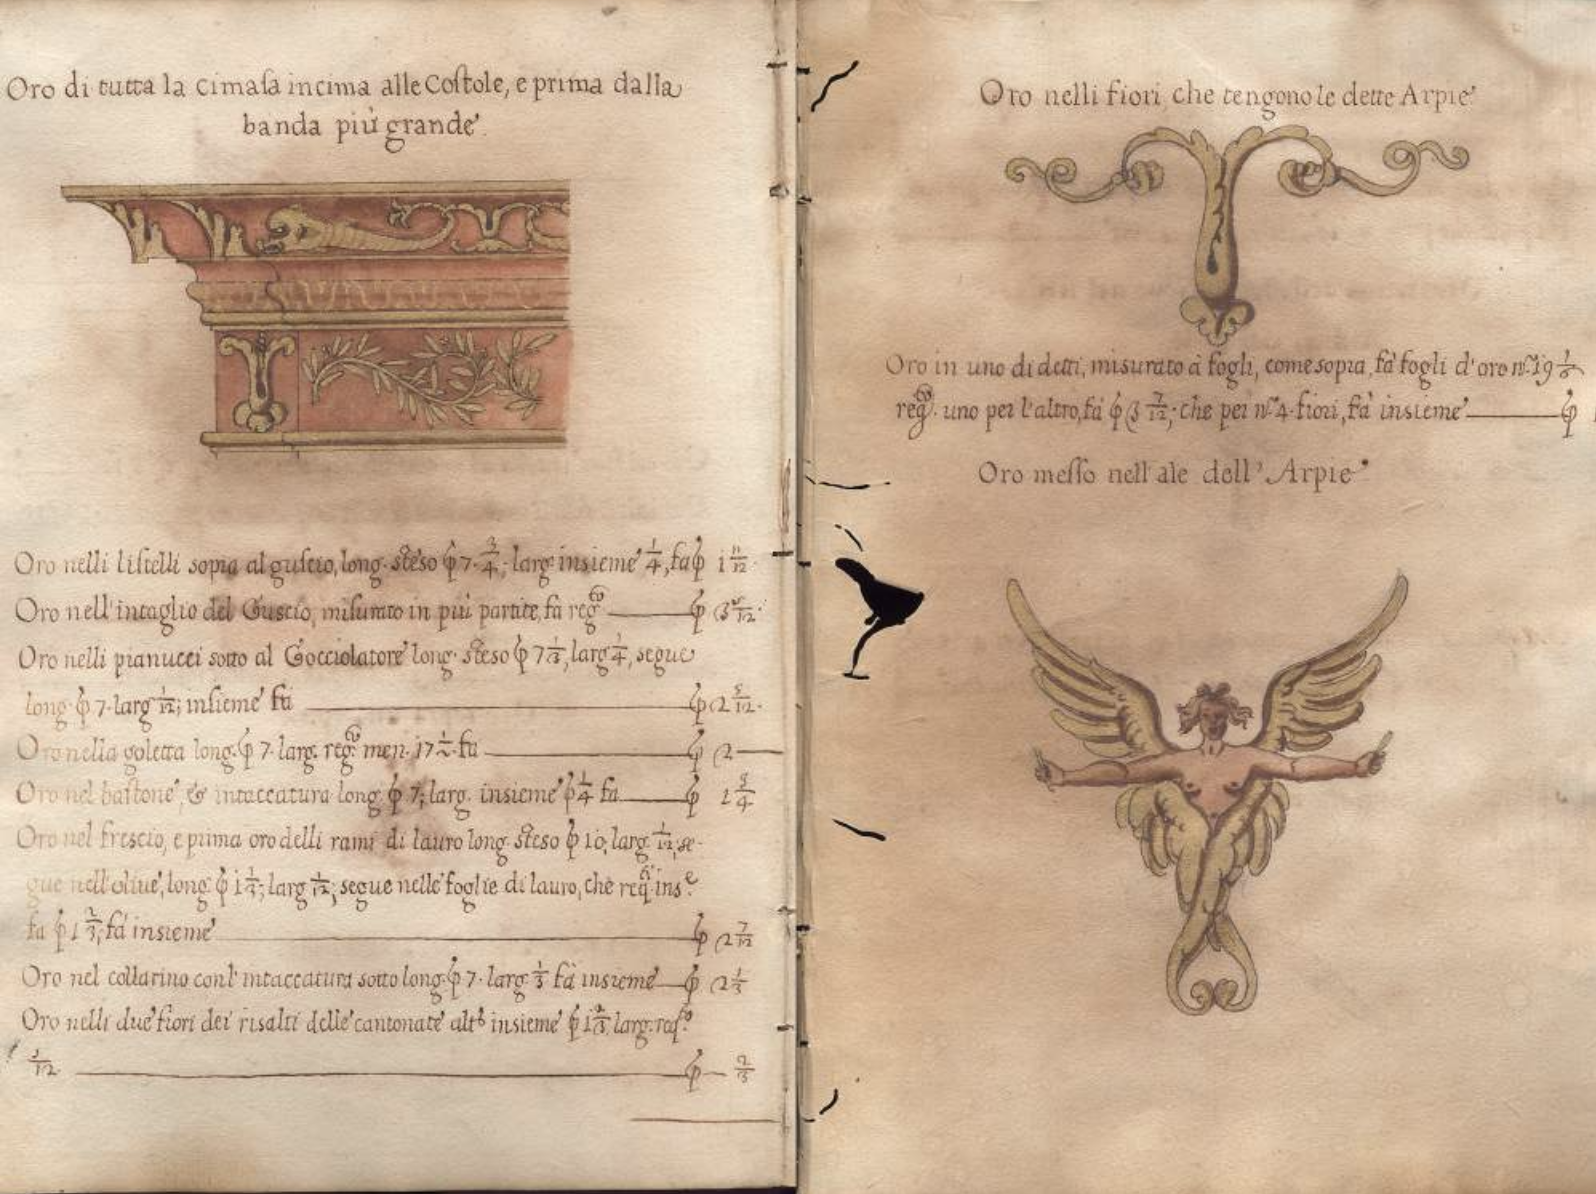 Oro di tutta la cimasa incima alle Costole, e prima dalla
banda più grande
Oro nelli listelli sopra al guscio, long. steso ꝓ 7 3/4; larg. insieme 1/4, fa ꝓ 1 11/12
Oro nell'intaglio del Guscio, misurato in più partite, fa reg.to ꝓ 3 5/12
Oro nelli pianucci sotto al Gocciolatore long. steso ꝓ 7 1/3, larg. 1/4, segue
long. ꝓ 7 larg. 1/12; insieme fa ꝓ 2 5/12
Oro nella goletta long. ꝓ 7 larg. reg.to men. 17 1/2 fa ꝓ 2
Oro nel bastone, & intaccatura long. ꝓ 7; larg. insieme ꝓ 1/4 fa ꝓ 1 3/4
Oro nel frescio, e prima oro delli rami di lauro long. steso ꝓ 10; larg. 1/12; se-
gue nell'olive, long. ꝓ 1 1/3; larg. 1/12; segue nelle foglie di lauro, che req. ins.e
fa ꝓ 1 2/3; fa insieme ꝓ 2 7/12
Oro nel collarino con l'intaccatura sotto long. ꝓ 7 larg. 1/3 fà insieme ꝓ 2 1/3
Oro nelli due fiori dei risalti delle cantonate insieme ꝓ 1 larg.
5/12 ꝓ 2/3
Oro nelli fiori che tengono le dette Arpie
Oro in uno di detti, misurato à fogli, come sopra, fà fogli d'oro n.º 19 1/6
reg.to uno per l'altro, fà ꝓ 3 7/12; che per n.º 4 fiori, fà insieme ꝓ
Oro messo nell'ale dell'Arpie